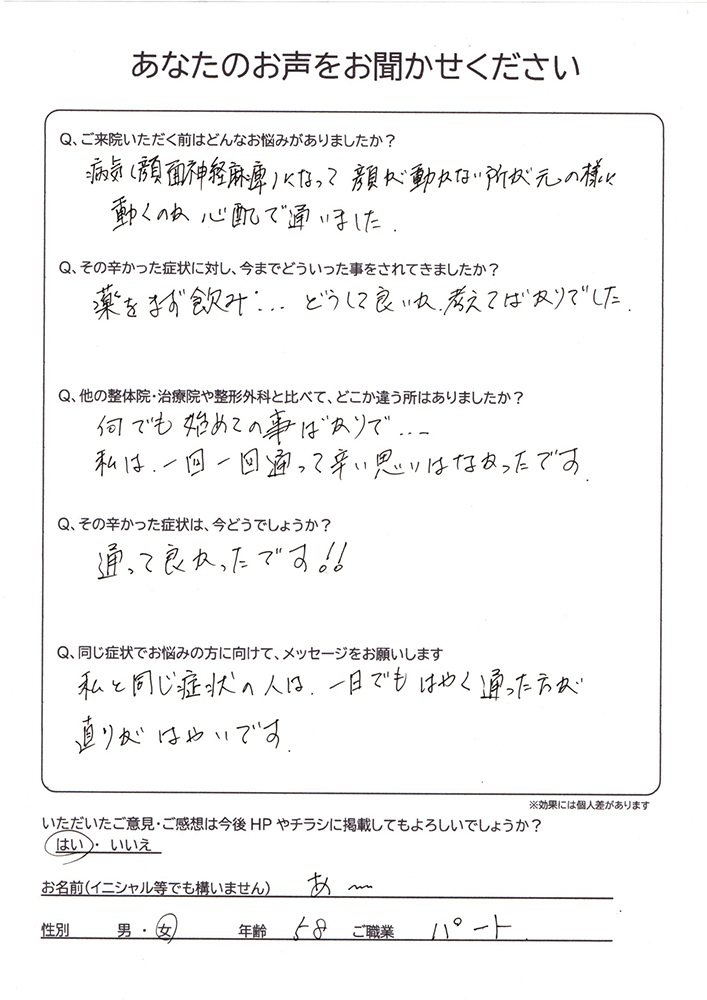 あなたのお声をお聞かせください
Q、ご来院いただく前はどんなお悩みがありましたか？
病気(顔面神経麻痺)になって 顔が動かない所が元の様に
動くのか 心配で通いました.
Q、その辛かった症状に対し、今までどういった事をされてきましたか？
薬をまず飲み… どうして良いか、考えてばかりでした.
Q、他の整体院・治療院や整形外科と比べて、どこか違う所はありましたか？
何でも始めての事ばかりで…
私は、一回一回通って辛い思いはなかったです.
Q、その辛かった症状は、今どうでしょうか？
通って良かったです!!
Q、同じ症状でお悩みの方に向けて、メッセージをお願いします
私と同じ症状の人は、一日でもはやく通った方が
直りがはやいです.
※効果には個人差があります
いただいたご意見・ご感想は今後HPやチラシに掲載してもよろしいでしょうか？
はい・いいえ
お名前(イニシャル等でも構いません) あ〜
性別 男・女 年齢 58 ご職業 パート.